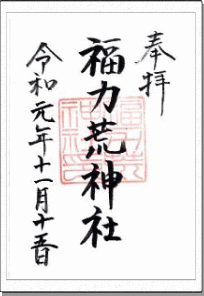 奉拝
福力荒神社
令和元年十一月十五日